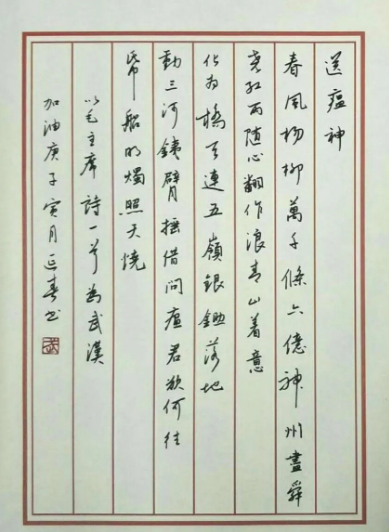 送瘟神
春風杨柳萬千條六億神州盡舜
堯红雨随心翻作浪青山着意
化为橋天連五嶺銀鋤落地
動三河銕臂摇借问瘟君欲何往
帋船明燭照天燒
以毛主席詩一首为武漢
加油庚子寅月延书